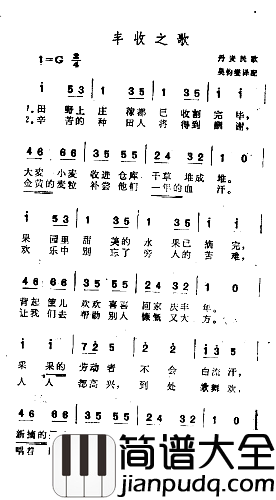 丰收之歌
1=G 2/4
丹麦民歌
吴钧燮译配
i 53 | i 35 | i 53 | i 35 |
1.田野上庄稼都已收割完毕，
2.辛苦的种田人将得到酬谢，
46 66 | 35 55 | 24 32 | i 0 |
大麦小麦收进仓库干草堆成堆。
金黄的麦粒补尝他们一年的血汗。
i 53 | i 35 | i 53 | i 35 |
果园里甜美的水果已摘完，
欢乐中别忘了旁人的苦难，
46 66 | 35 55 | 24 32 | i 0 |
背起筐儿欢欢喜喜回家庆丰年。
让我们去帮助别人慷慨又大方。
果果的劳动者不会白流汗，
人人都高兴，到处歌舞欢，
新摘的
唱着
简谱大全
www.jianpudq.com